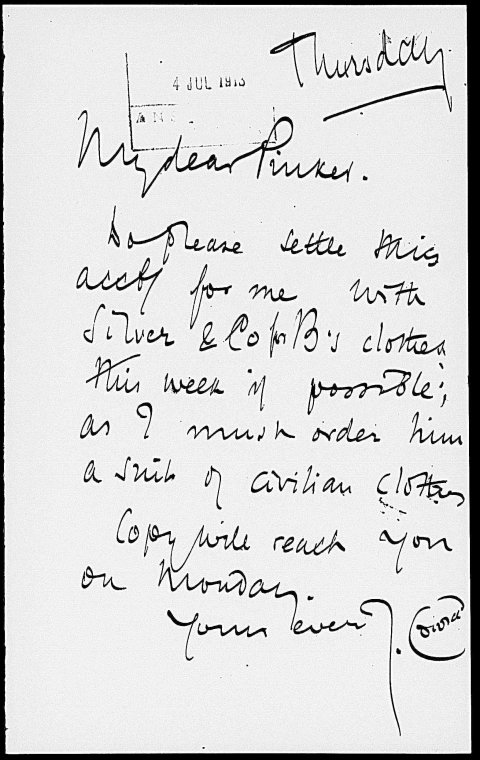 Thursday.
4 JUL 1913
My dear Pinker.
Do please settle this
acct for me with
Silver & Co for B's clothes
this week if possible;
as I must order him
a suit of civilian clothes
Copy will reach you
on Monday.
Yours ever J. Conrad